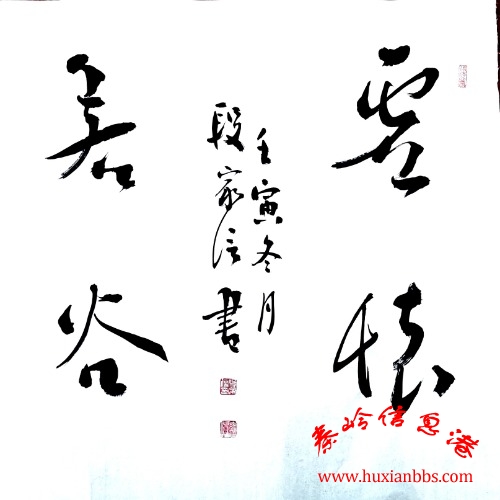 虚怀
若谷
壬寅冬月
段家信书
秦岭信息港
www.huxianbbs.com